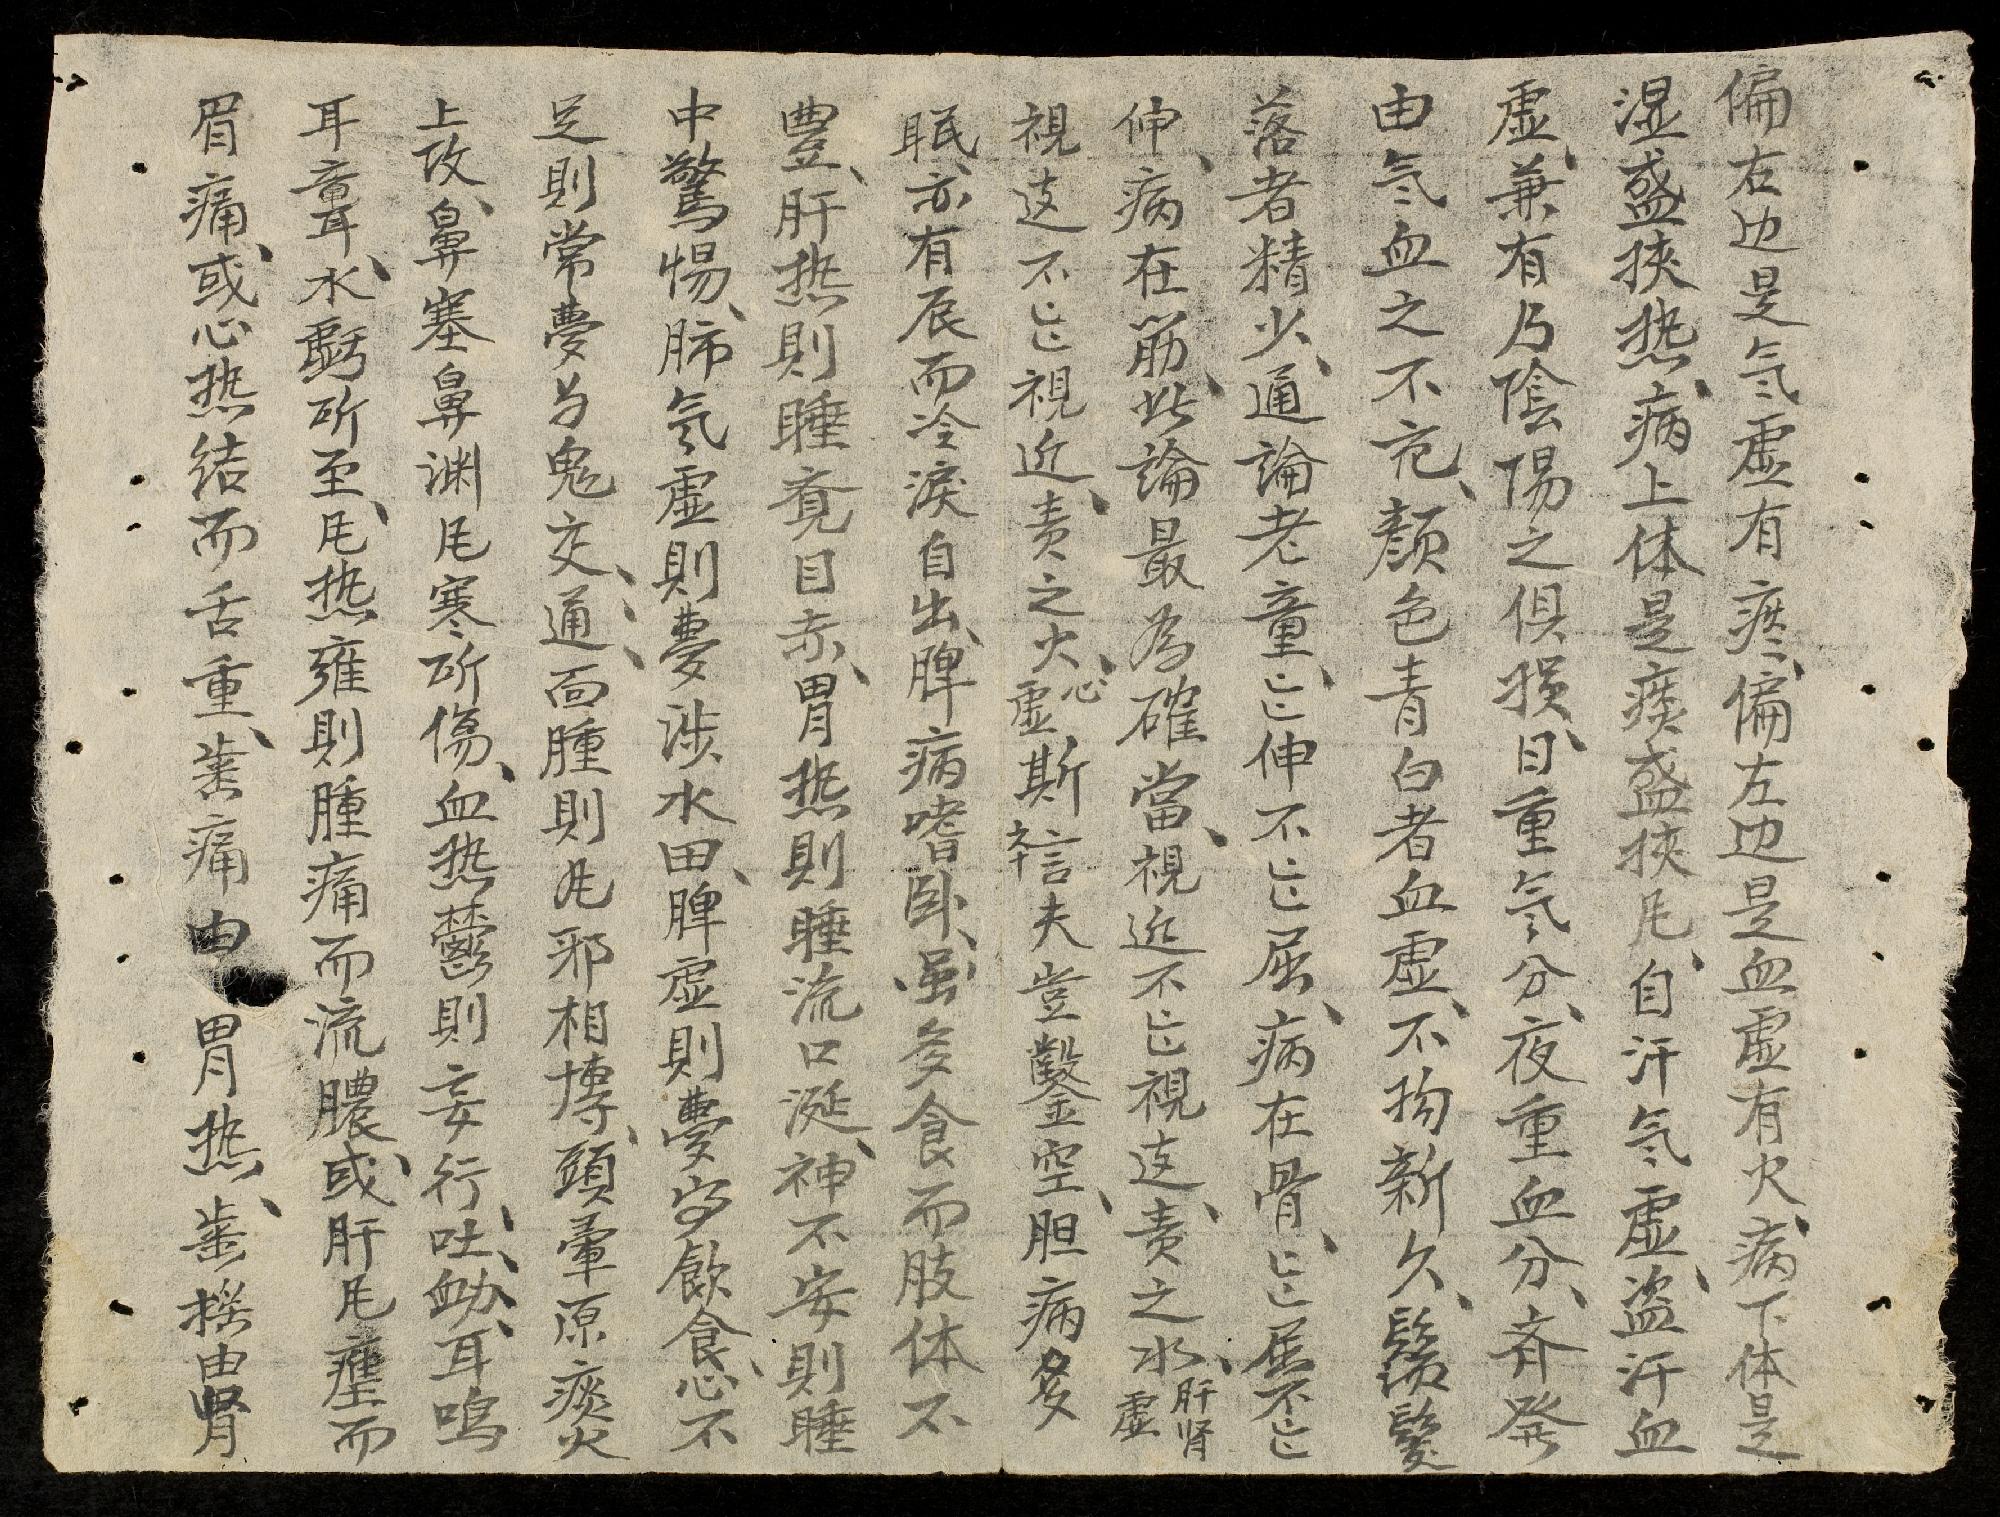 偏右边是气虚有痰、偏左边是血虚有火、病下体是
湿盛挾热、病上体是痰盛挾𠘨、自汗气虚、盗汗血
虚、兼有乃陰陽之俱损、日重气分、夜重血分、斉発
由气血之不充、顏色青白者血虚、不拘新久、鬚髮
落者精少、通論老童、𠃊伸不𠃊屈、病在骨、𠃊屈不𠃊
伸、病在筋、此論最為確當、視近不𠃊視远、责之水、肝肾虚
視远不𠃊視近、责之火、心虚斯言夫豈鑿空、胆病多
眠、亦有辰而冷淚自出、脾病嗜卧、虽多食而肢体不
豊、肝热則睡覚目赤、胃热則睡流口涎、神不安則睡
中驚惕、肺气虚則夢涉水田、脾虚則夢字飲食、心不
足則常夢与鬼交通、面腫則𠘨邪相搏、頭暈原痰火
上攻、鼻塞鼻渊𠘨寒所傷、血热鬱則妄行吐、衂、耳鳴
耳聋、水虧所至、𠘨热雍則腫痛而流膿、或肝𠘨壅而
眉痛、或心热结而舌重、歯痛由胃热、歯摇由腎